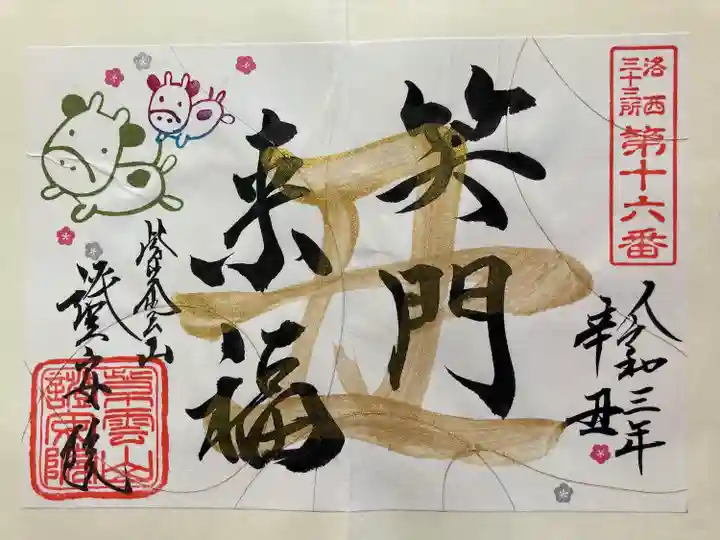 洛西
三十三所
第十六番
令和三年
辛丑
丑
笑門
来福
紫雲山
紫雲山